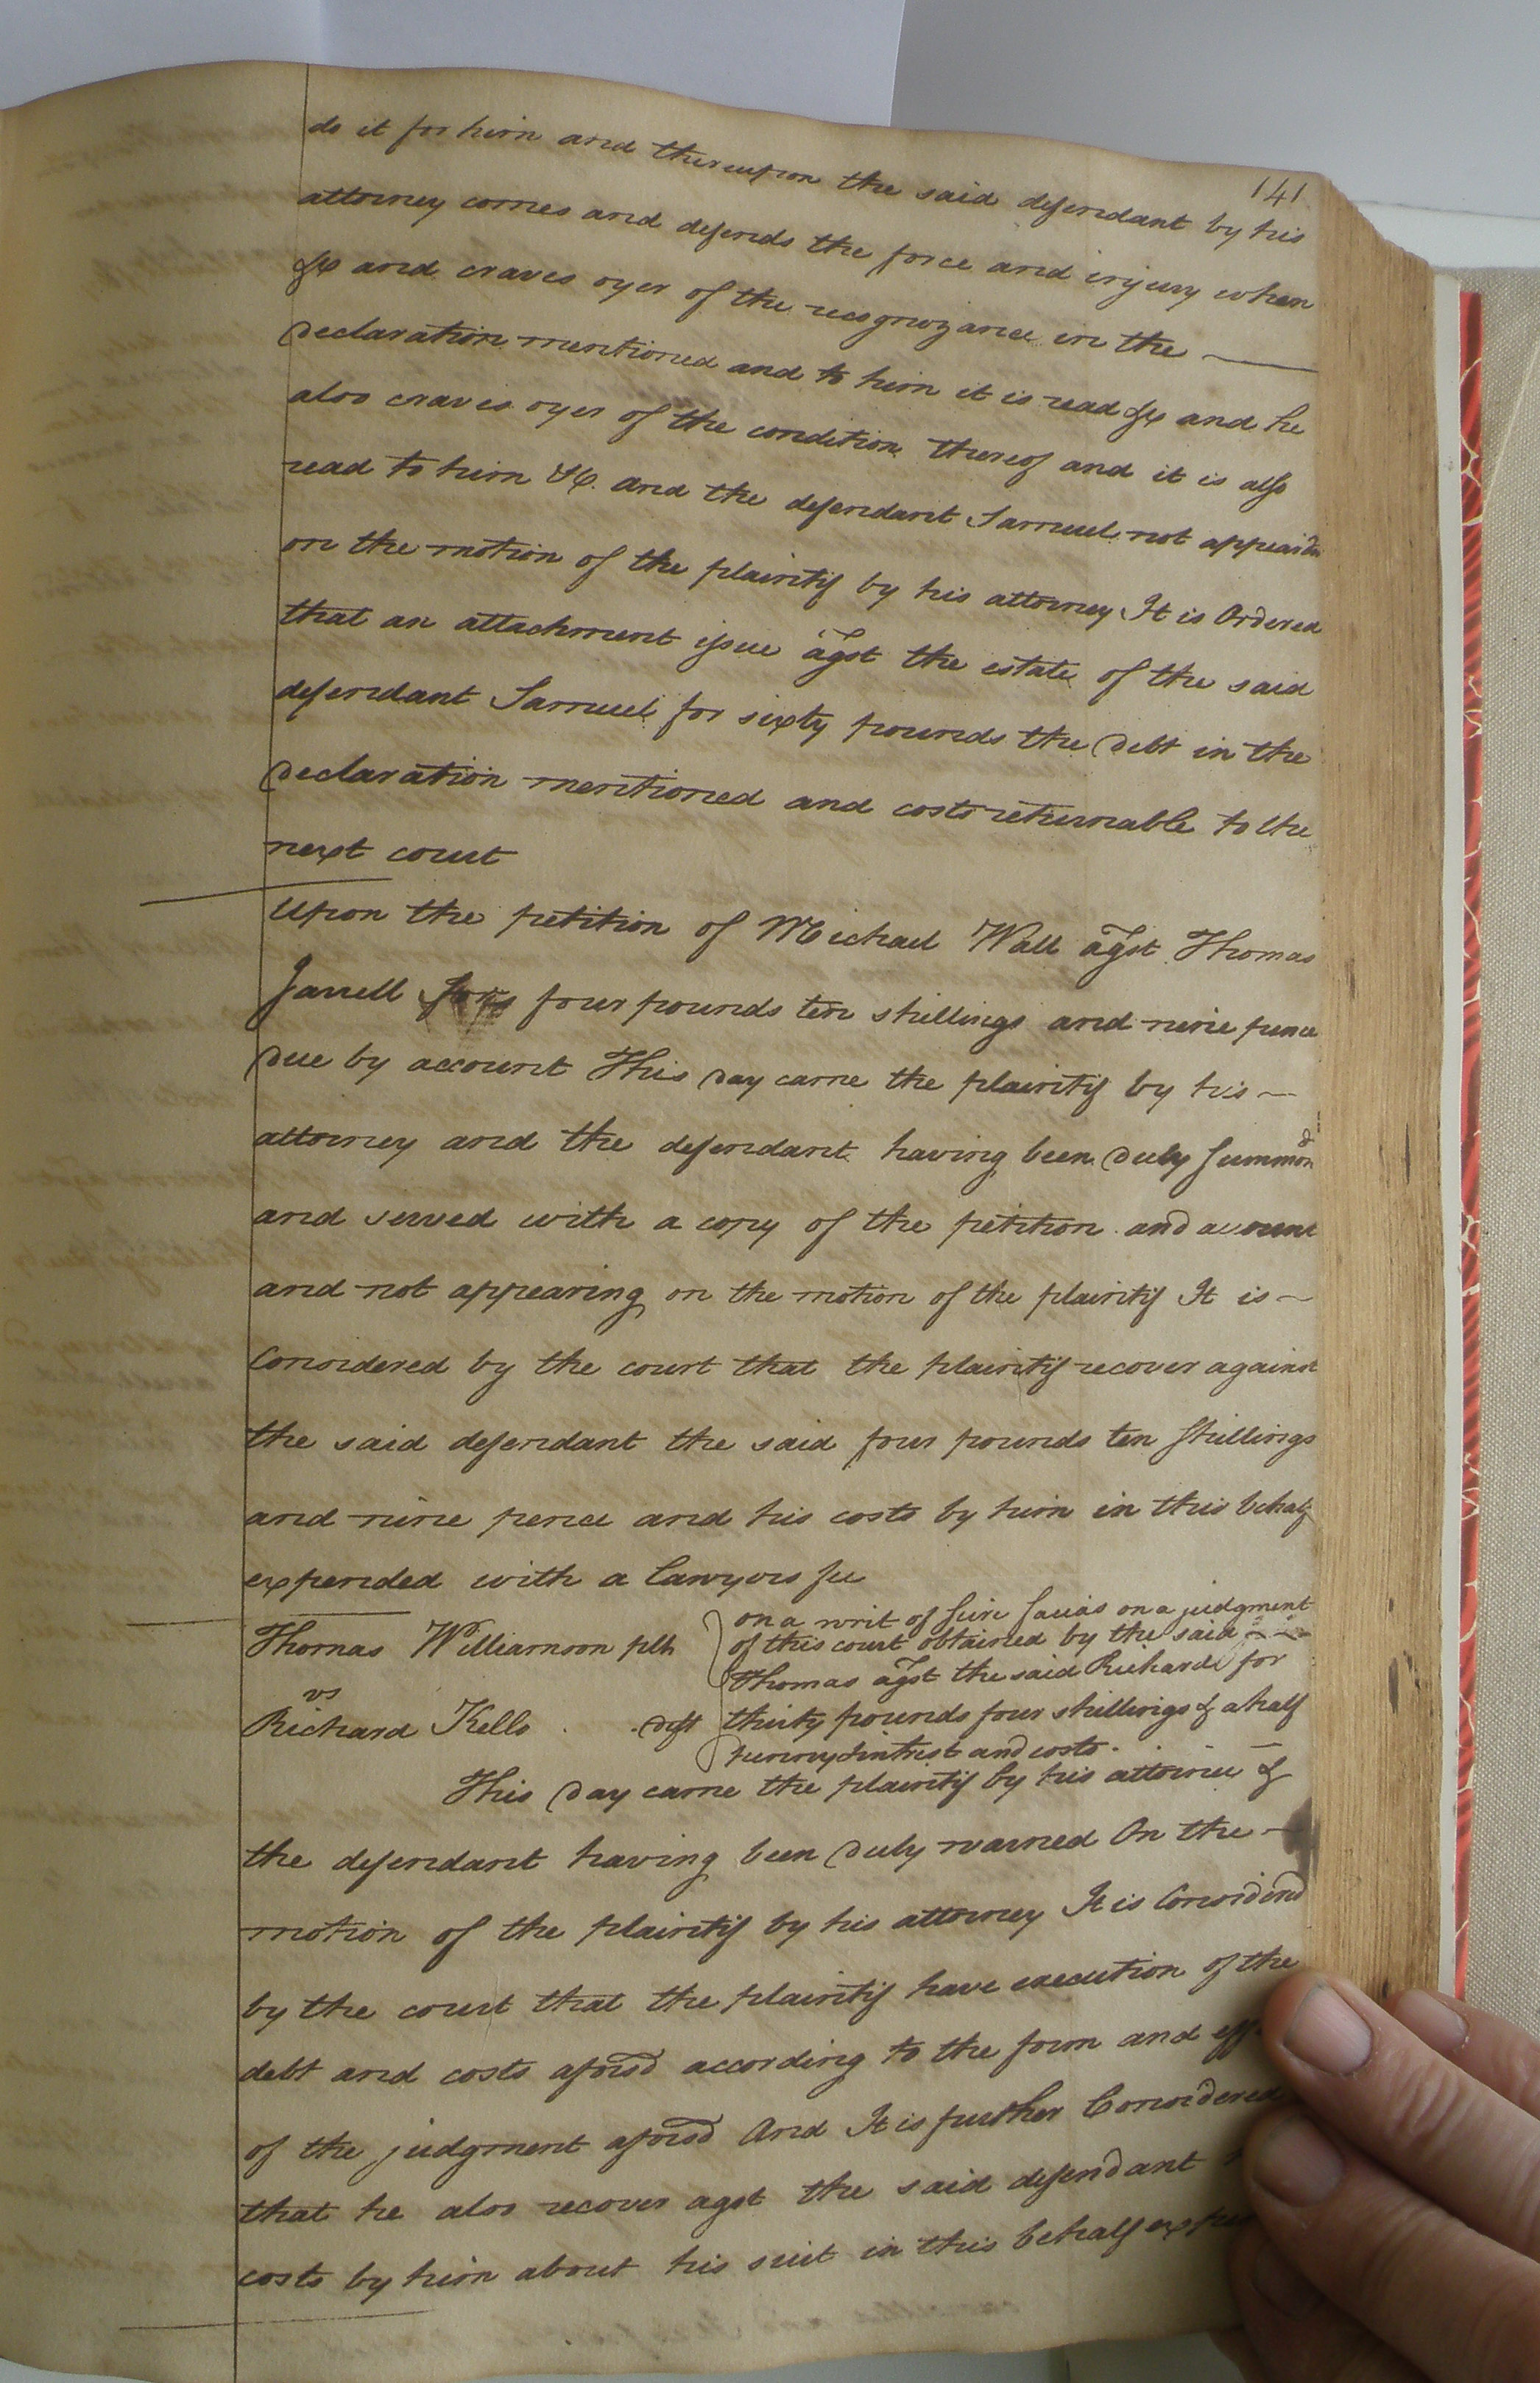 141
do it for him and thereupon the said defendant by his
attorney comes and defends the force and injury when
&c and craves oyer of the recognizance in the
declaration mentioned and to him it is read &c and he
also craves oyer of the condition thereof and it is also
read to him &c. and the defendant Samuel not appearin
on the motion of the plaintif by his attorney It is Ordered
that an attachment issue agst the estate of the said
defendant Samuel for sixty pounds the debt in the
declaration mentioned and costs returnable to the
next court
Upon the petition of Michael Wall agst Thomas
Jarrell for four pounds ten shillings and nine pence
due by account This day came the plaintif by his
attorney and the defendant having been duly summond
and served with a copy of the petition and account
and not appearing on the motion of the plaintif It is
Considered by the court that the plaintif recover against
the said defendant the said four pounds ten shillings
and nine pence and his costs by him in this behalf
expended with a Lawyers fee
Thomas Williamson plt
vs
Richard Kello deft
on a writ of scire facias on a judgment
of this court obtained by the said
Thomas agst the said Richard for
thirty pounds four shillings & a half
penny & intrest and costs.
This day came the plaintif by his attornie &
the defendant having been duly warned On the
motion of the plaintif by his attorney It is Considerd
by the court that the plaintif have execution of the
debt and costs aforsd according to the form and
of the judgment aforsd And It is further Considered
that he also recover agst the said defendant
costs by him about his suit in this behalf